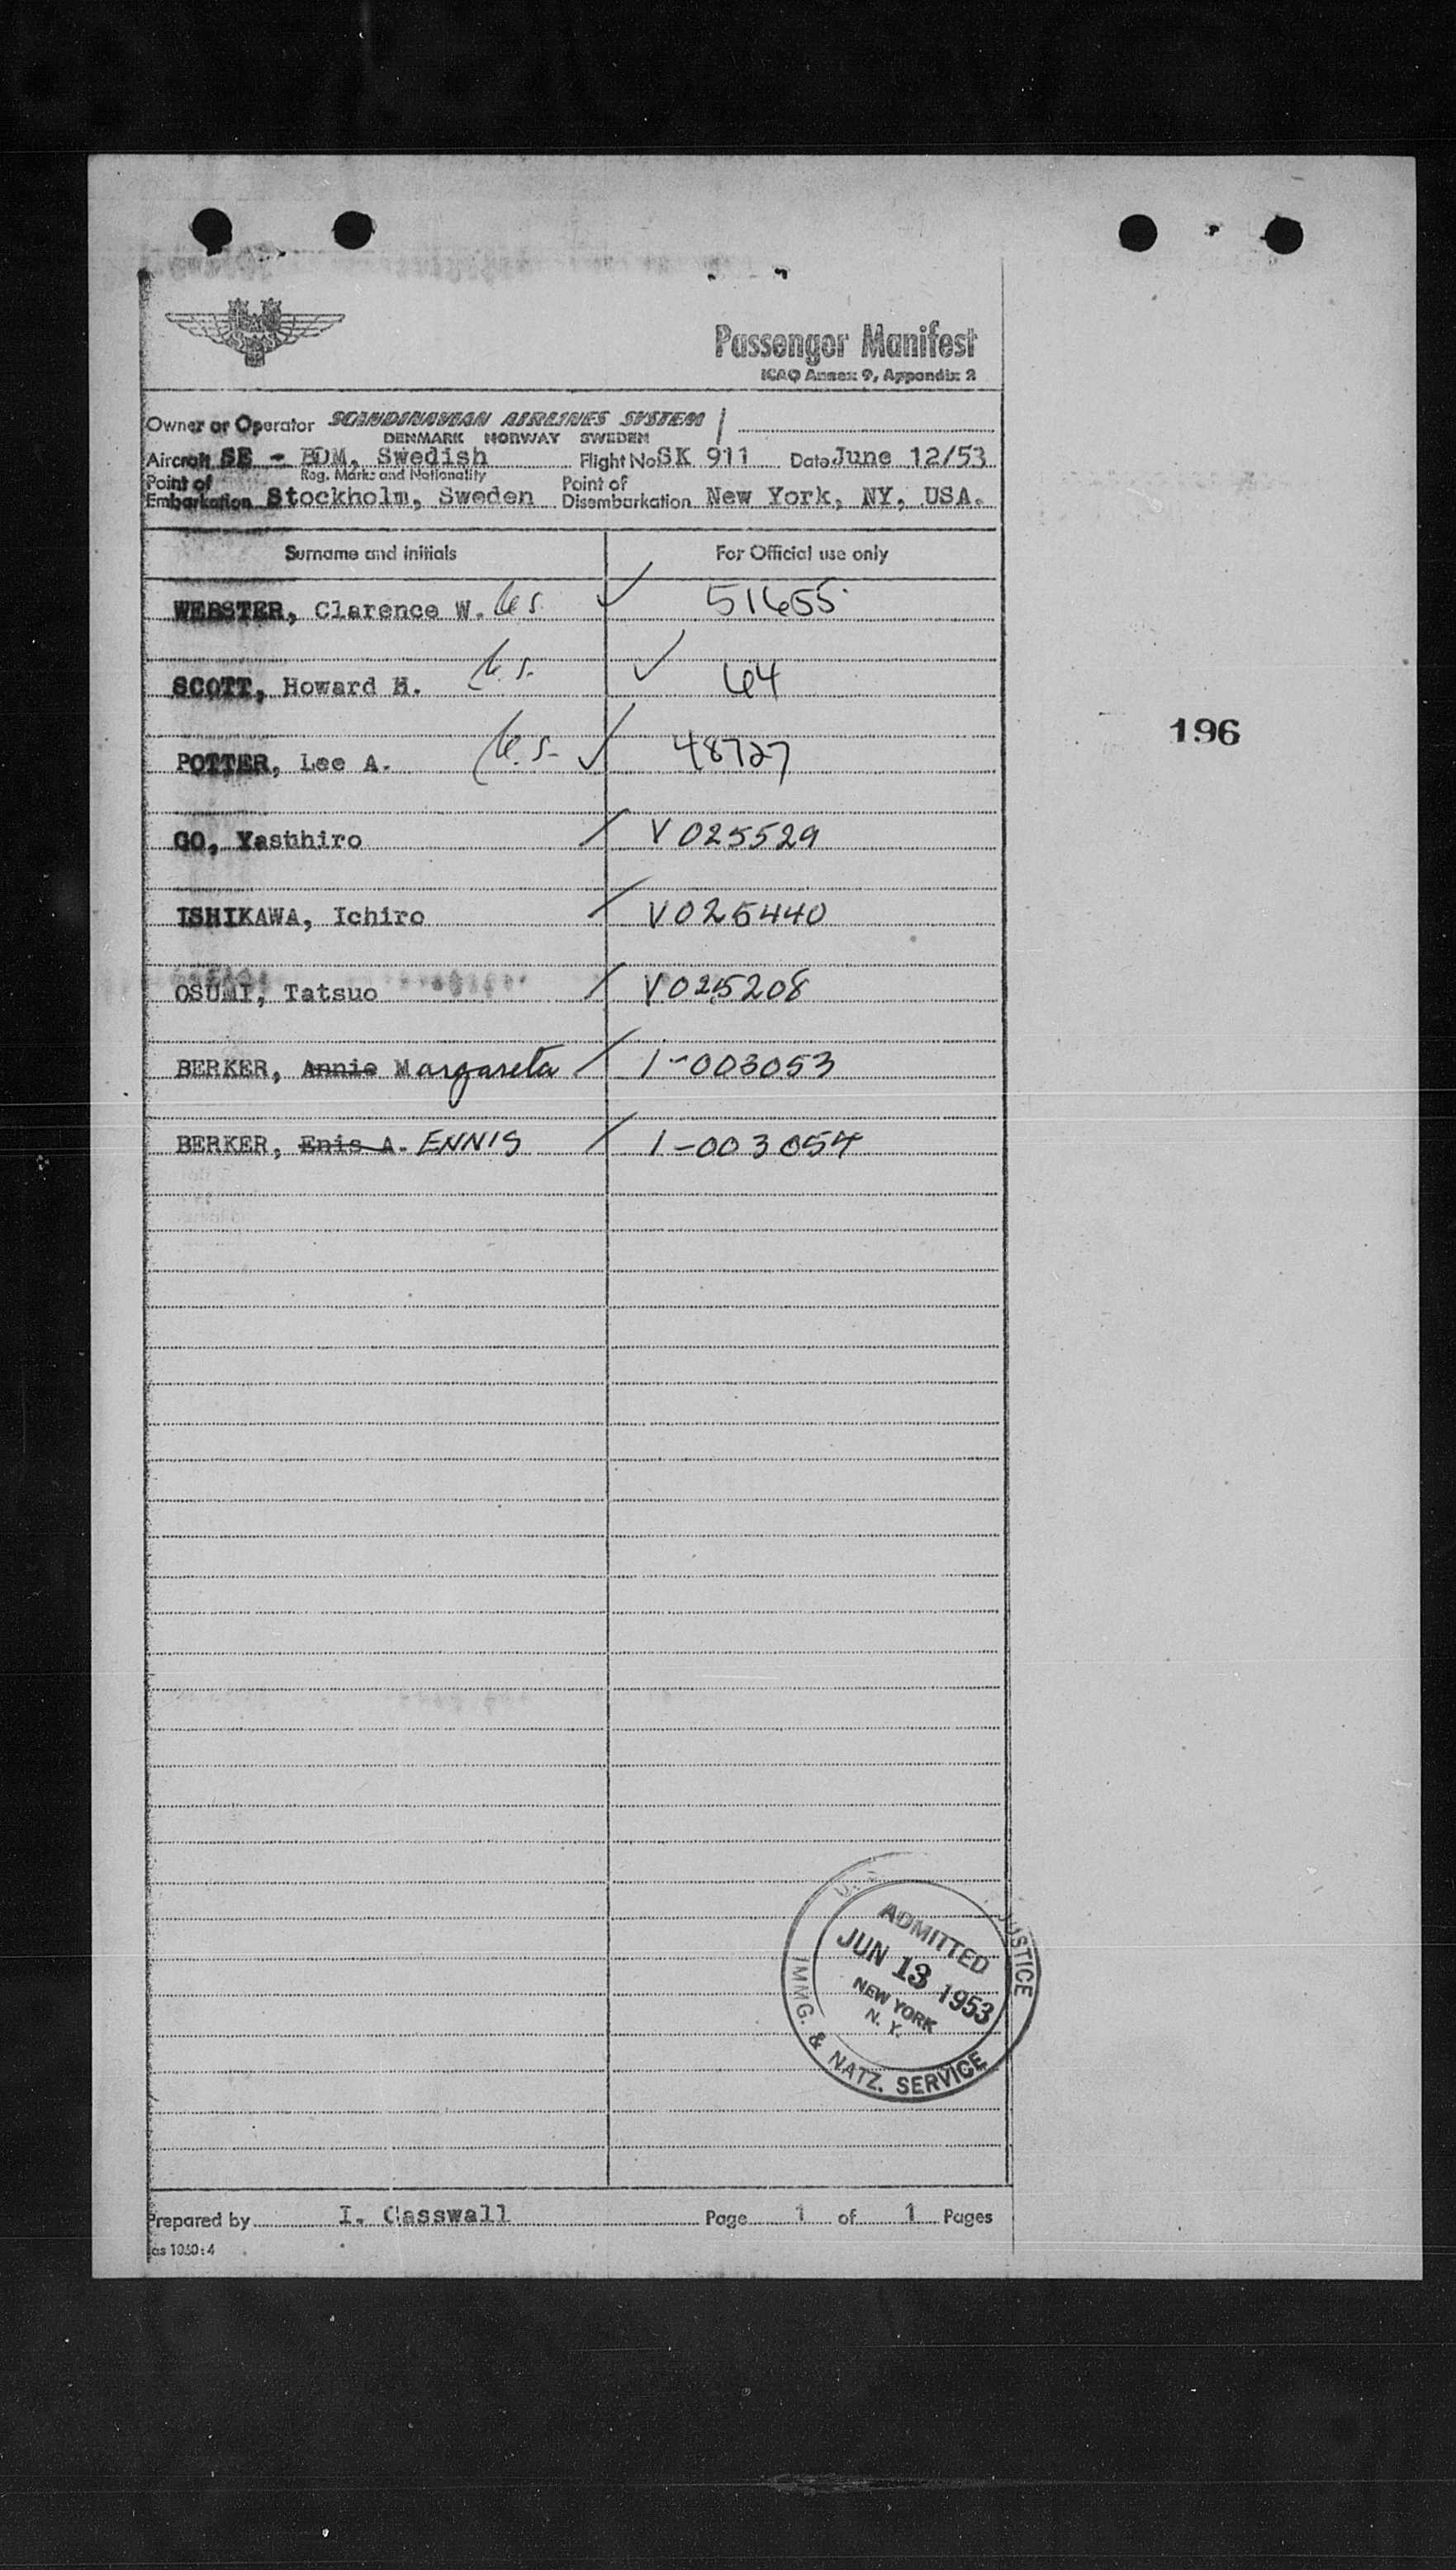 Passenger Manifest
ICAO Annex 9, Appendix 2
Owner or Operator SCANDINAVIAN AIRLINES SYSTEM
DENMARK NORWAY SWEDEN
Aircraft SE - BDM, Swedish Flight No SK 911 Date June 12/53
Reg. Marks and Nationality
Point of Embarkation Stockholm, Sweden Point of Disembarkation New York, NY, USA.
Surname and initials For Official use only
WEBSTER, Clarence W. U.S. ✓ 51655
SCOTT, Howard H. U.S. ✓ 64
196
POTTER, Lee A. U.S. ✓ 48727
GO, Yasuhiro / V025529
ISHIKAWA, Ichiro / V025440
OSUMI, Tatsuo / V025208
BERKER, Annie Margareta / 1-003053
BERKER, Enis A. ENNIS / 1-003054
U.S. JUSTICE
ADMITTED
JUN 13 1953
NEW YORK
N. Y.
IMMG. & NATZ. SERVICE
Prepared by I. Casswall Page 1 of 1 Pages
as 1050:4